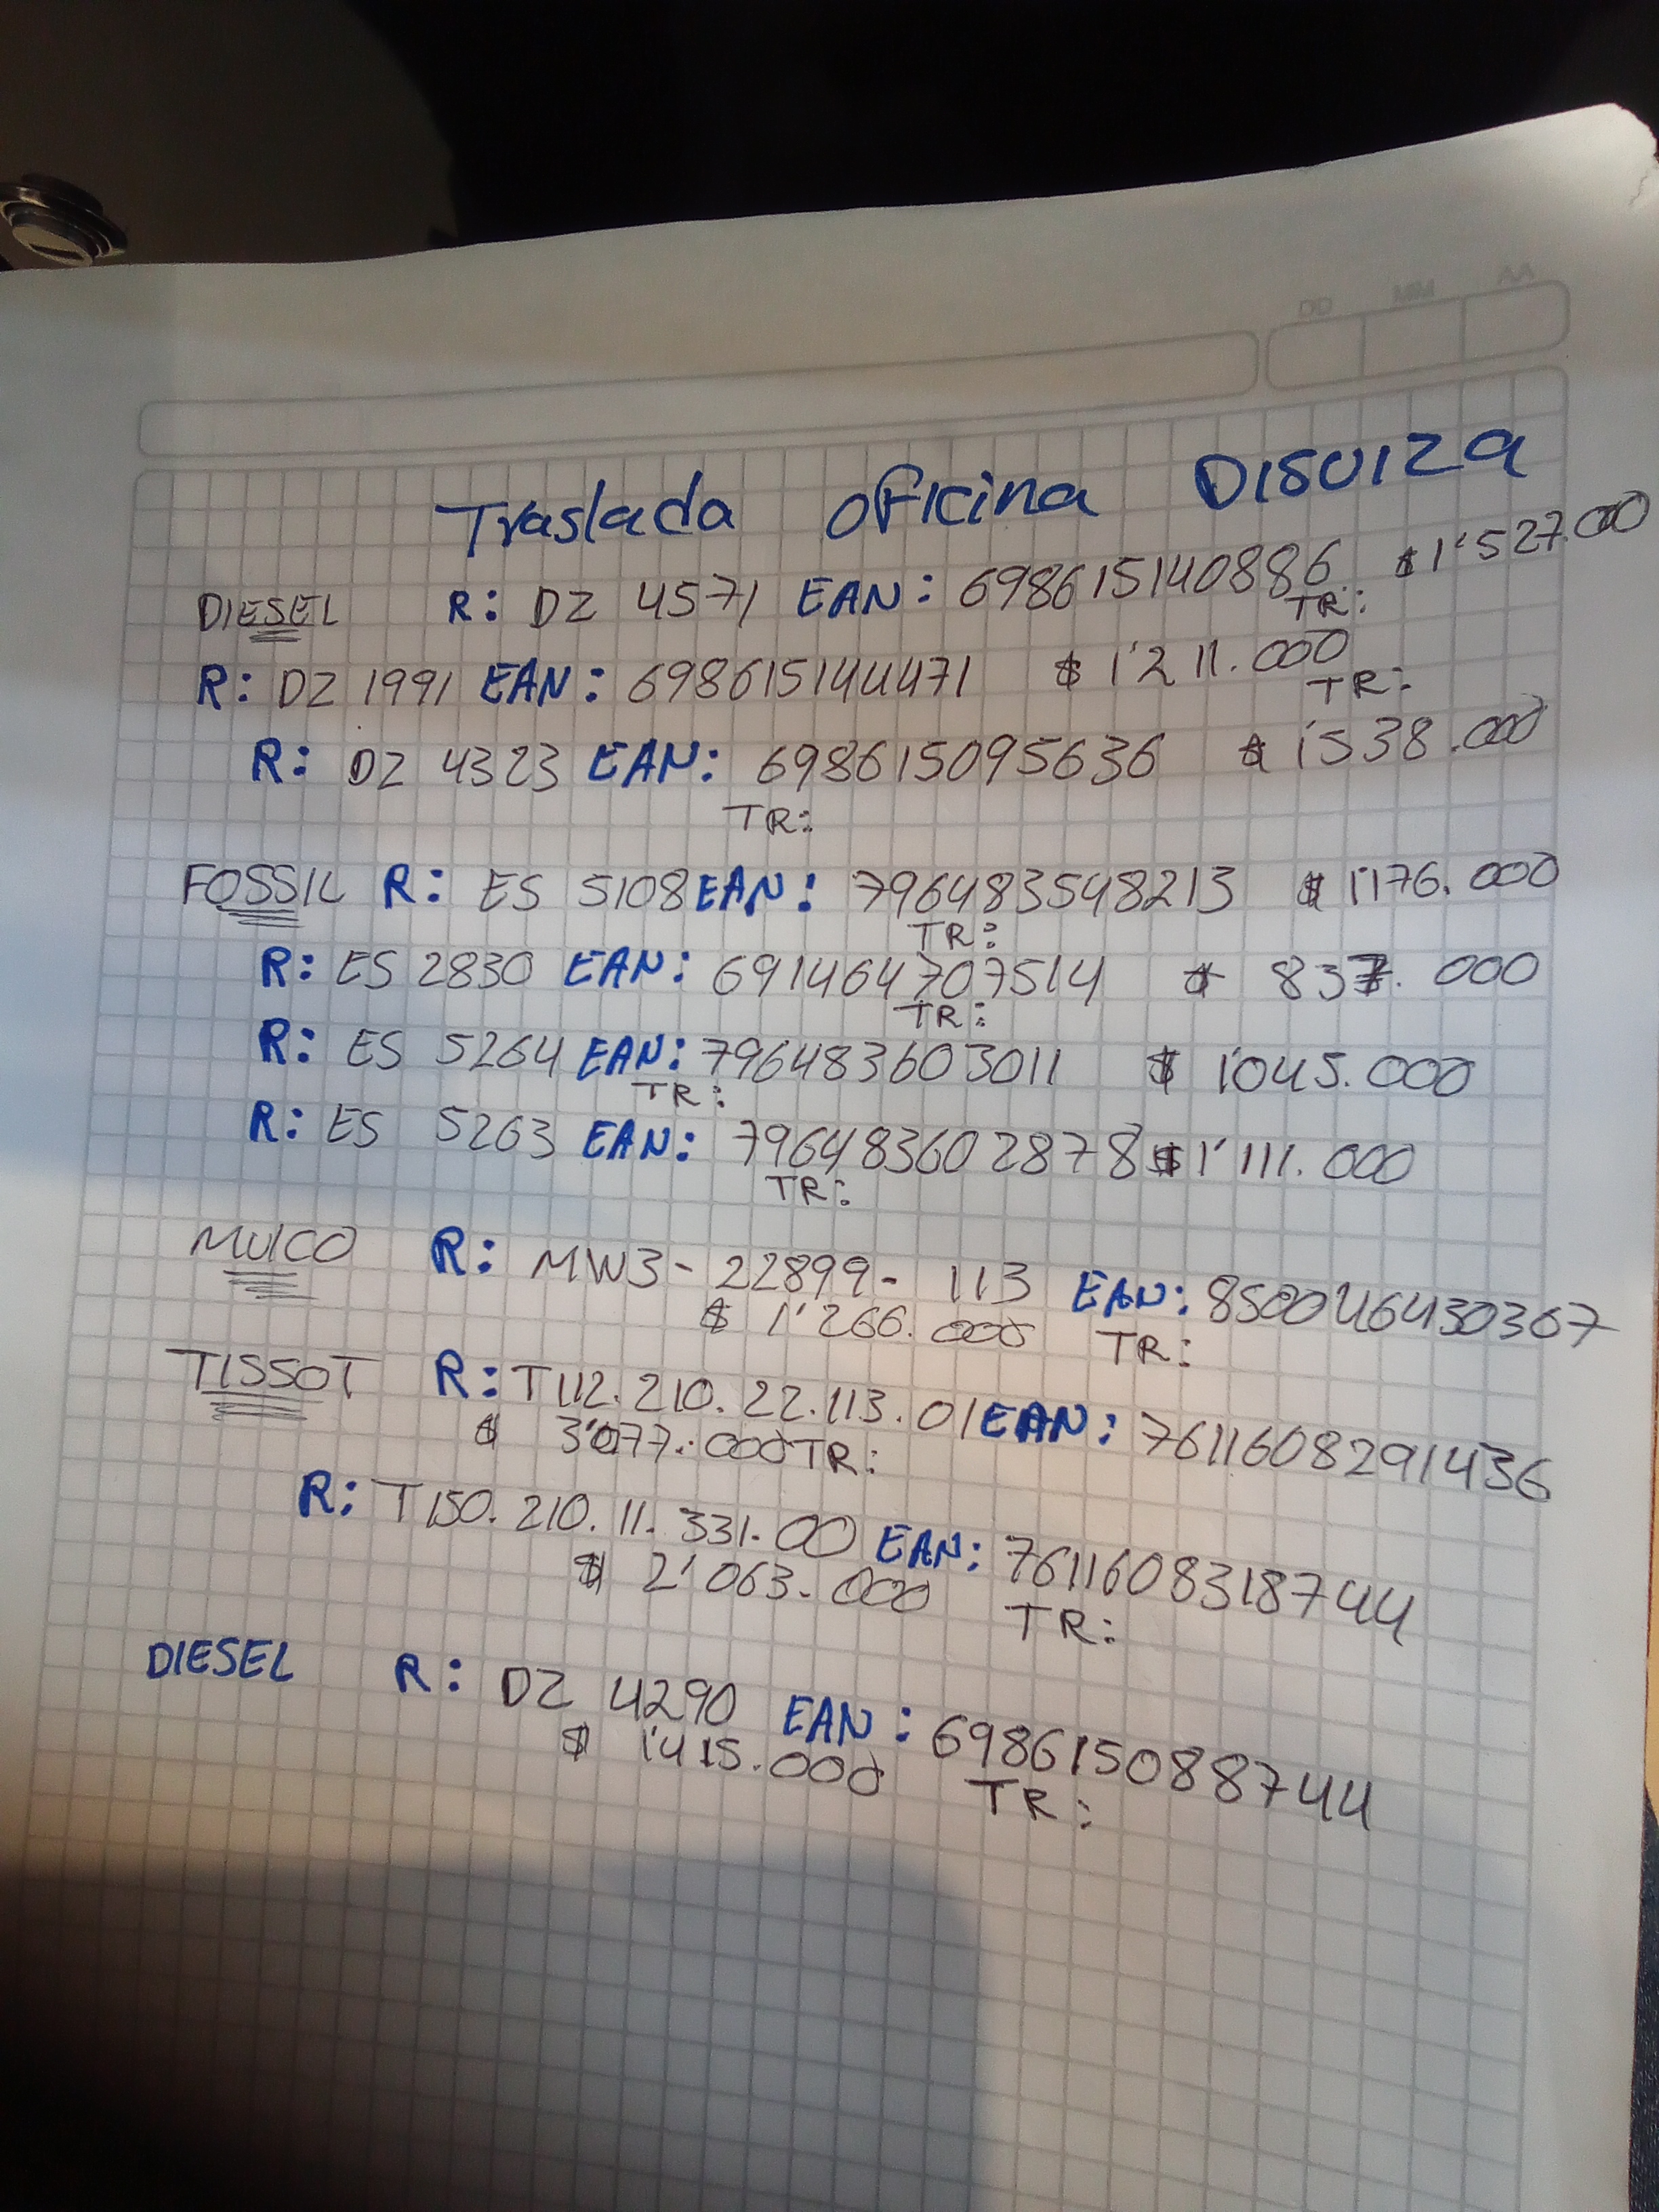 DD MM AA
Traslada oficina DISUIZA
DIESEL R: DZ 4571 EAN: 698615140886 $1'527.000
TR:
R: DZ 1991 EAN: 698615144471 $ 1'211.000
TR:
R: DZ 4323 EAN: 698615095636 $ 1'538.000
TR:
FOSSIL R: ES 5108 EAN: 796483548213 $ 1'176.000
TR:
R: ES 2830 EAN: 691464707514 $ 837.000
TR:
R: ES 5264 EAN: 796483603011 $ 1'045.000
TR:
R: ES 5263 EAN: 796483602878 $1'111.000
TR:
MULCO R: MW3-22899-113 EAN: 8500464430367
$ 1'266.000 TR:
TISSOT R: T112.210.22.113.01 EAN: 7611608291436
$ 3'077.000 TR:
R: T150.210.11.331.00 EAN: 7611608318744
$ 2'063.000 TR:
DIESEL R: DZ 4290 EAN: 698615088744
$ 1'415.000 TR: